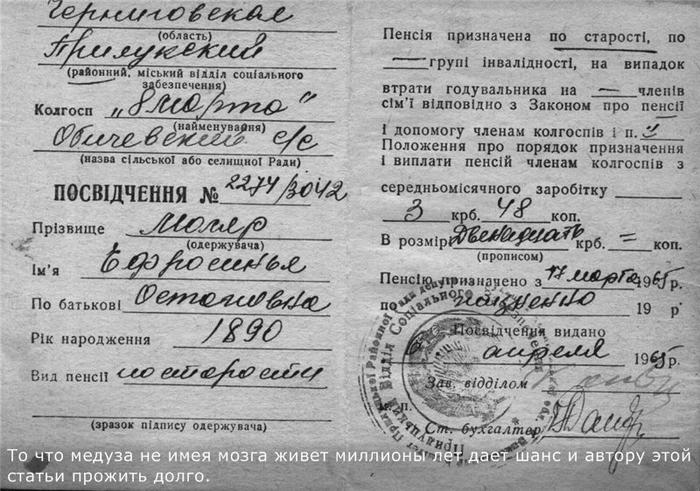 Черниговская
(область)
Прилукский
(районний, міський відділ соціального
забезпечення)
Колгосп „8 марта"
(найменування)
Обичевский с/с
(назва сільської або селищної Ради)
ПОСВІДЧЕННЯ № 2274/3042
Прізвище Моляр
(одержувача)
Ім'я Ефросинья
По батькові Остаповна
Рік народження 1890
Вид пенсії по старости
(зразок підпису одержувача)
Пенсія призначена по старості, по
групі інвалідності, на випадок
втрати годувальника на — членів
сім'ї відповідно з Законом про пенсії
і допомогу членам колгоспів і п.
Положення про порядок призначення
і виплати пенсій членам колгоспів з
середньомісячного заробітку
3 крб. 48 коп.
В розмірі Двенадцать крб. = коп.
(прописом)
Пенсію призначено з 17 марта 1965 р.
по пожизненно 19 р
Посвідчення видано
апреля 1965 р.
Зав. відділом
м. п.
Ст. бухгалтер
То что медуза не имея мозга живет миллионы лет дает шанс и автору этой
статьи прожить долго.